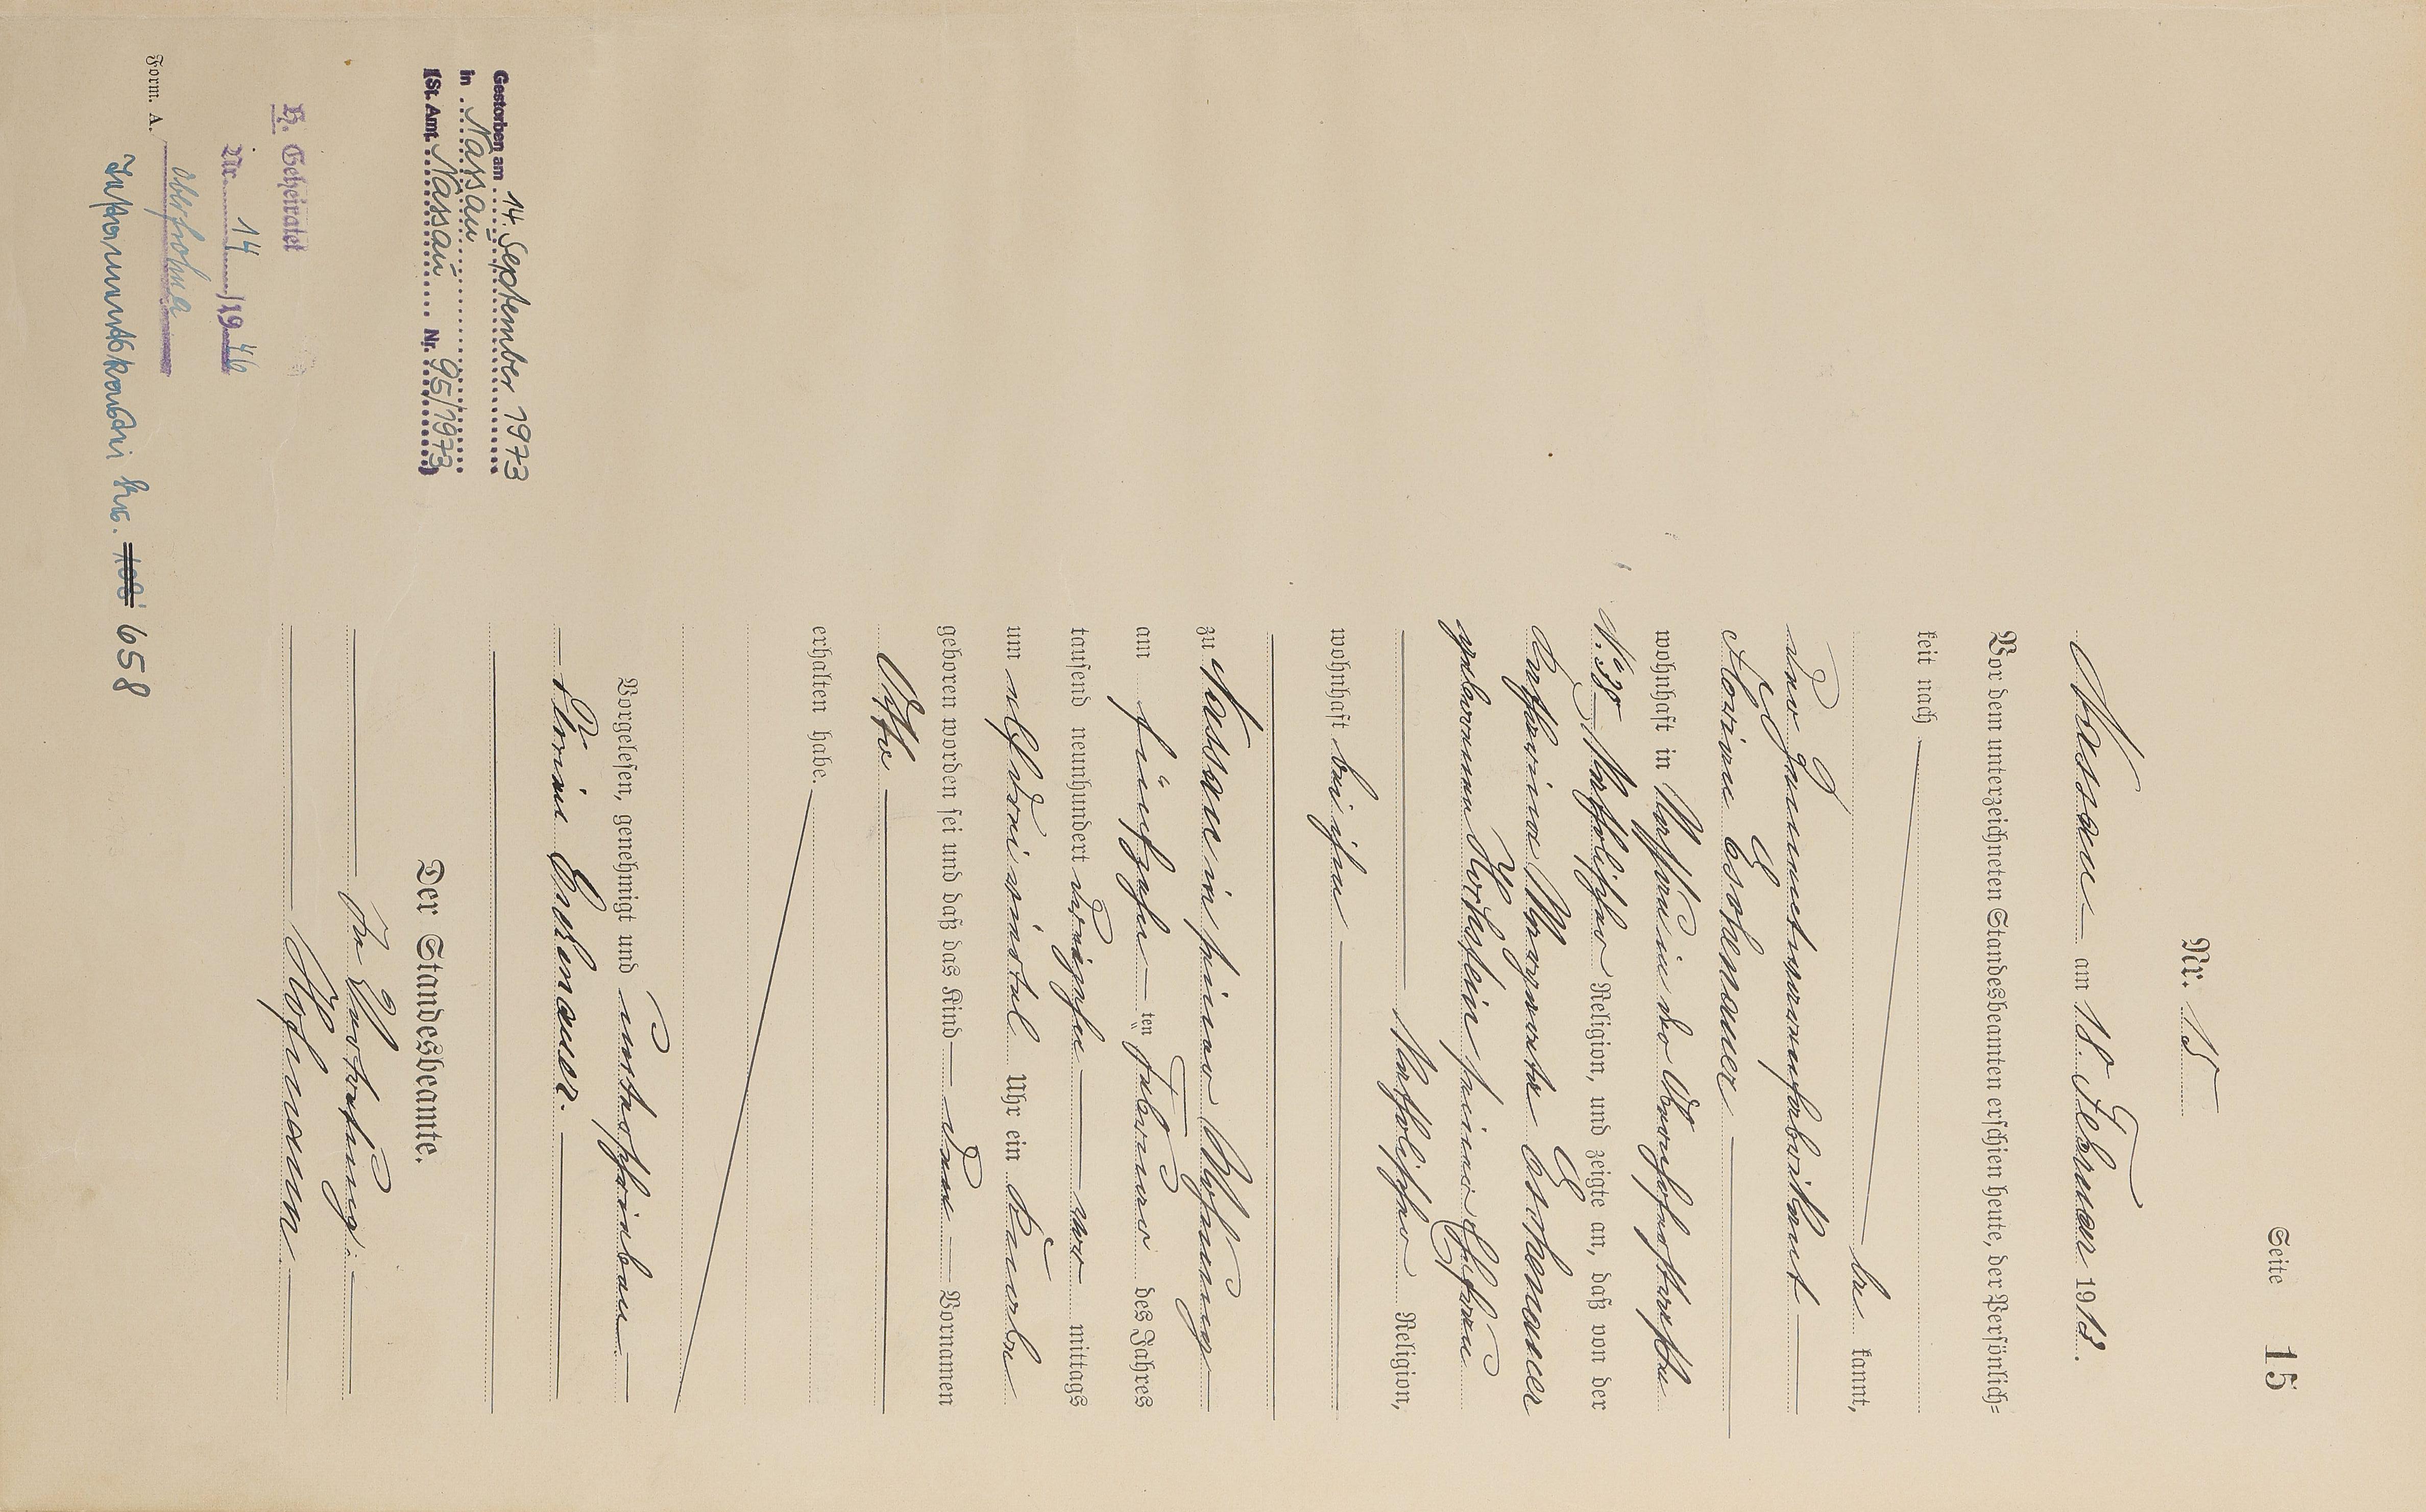 Seite 15
Nr. 15
Nassau am 18. Februar 1913.
Vor dem unterzeichneten Standesbeamten erschien heute, der Persönlich=
keit nach
be kannt,
der
Eschenauer
wohnhaft in
No. 38, katholischer Religion, und zeigte an, daß von der
Katharina Margareta Eschenauer
geborenen seiner Ehefrau
katholischer Religion,
wohnhaft bei ihm
zu Nassau in seiner Wohnung
am fünfzehnten Februar des Jahres
tausend neunhundert dreizehn vor mittags
um elf drei viertel Uhr ein Knabe
geboren worden sei und daß das Kind den Vornamen
Otto
erhalten habe.
Vorgelesen, genehmigt und unterschrieben
Eschenauer.
Der Standesbeamte.
In Vertretung:
Hofmann
Gestorben am 14. September 1973
in Nassau
(St. Amt Nassau Nr. 95/1973)
H. Geheiratet
Nr. 14/1946
Oberfrohna
Form. A.
658